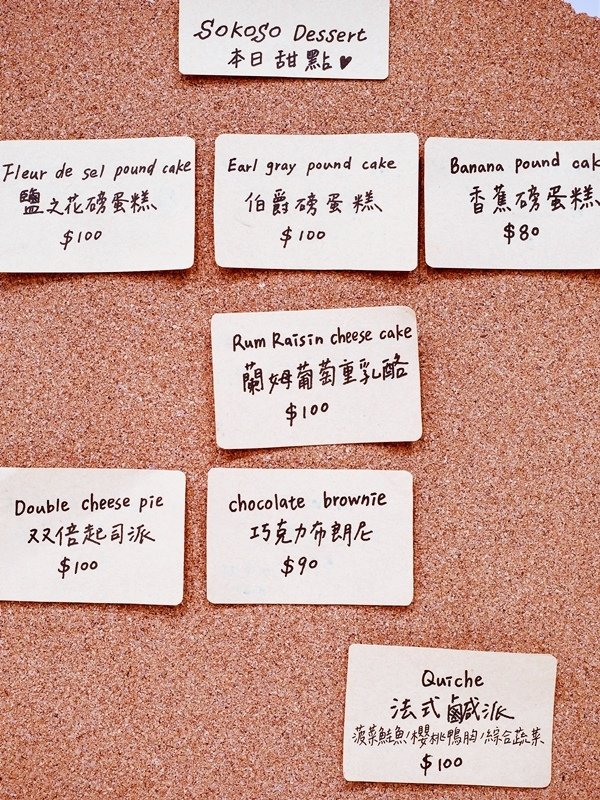 SOKOSO Dessert
本日甜點♥
Fleur de sel pound cake
鹽之花磅蛋糕
$100
Earl gray pound cake
伯爵磅蛋糕
$100
Banana pound cak
香蕉磅蛋糕
$80
Rum Raisin cheese cake
蘭姆葡萄重乳酪
$100
Double cheese pie
双倍起司派
$100
chocolate brownie
巧克力布朗尼
$90
Quiche
法式鹹派
菠菜鮭魚/櫻桃鴨胸/綜合蔬菜
$100